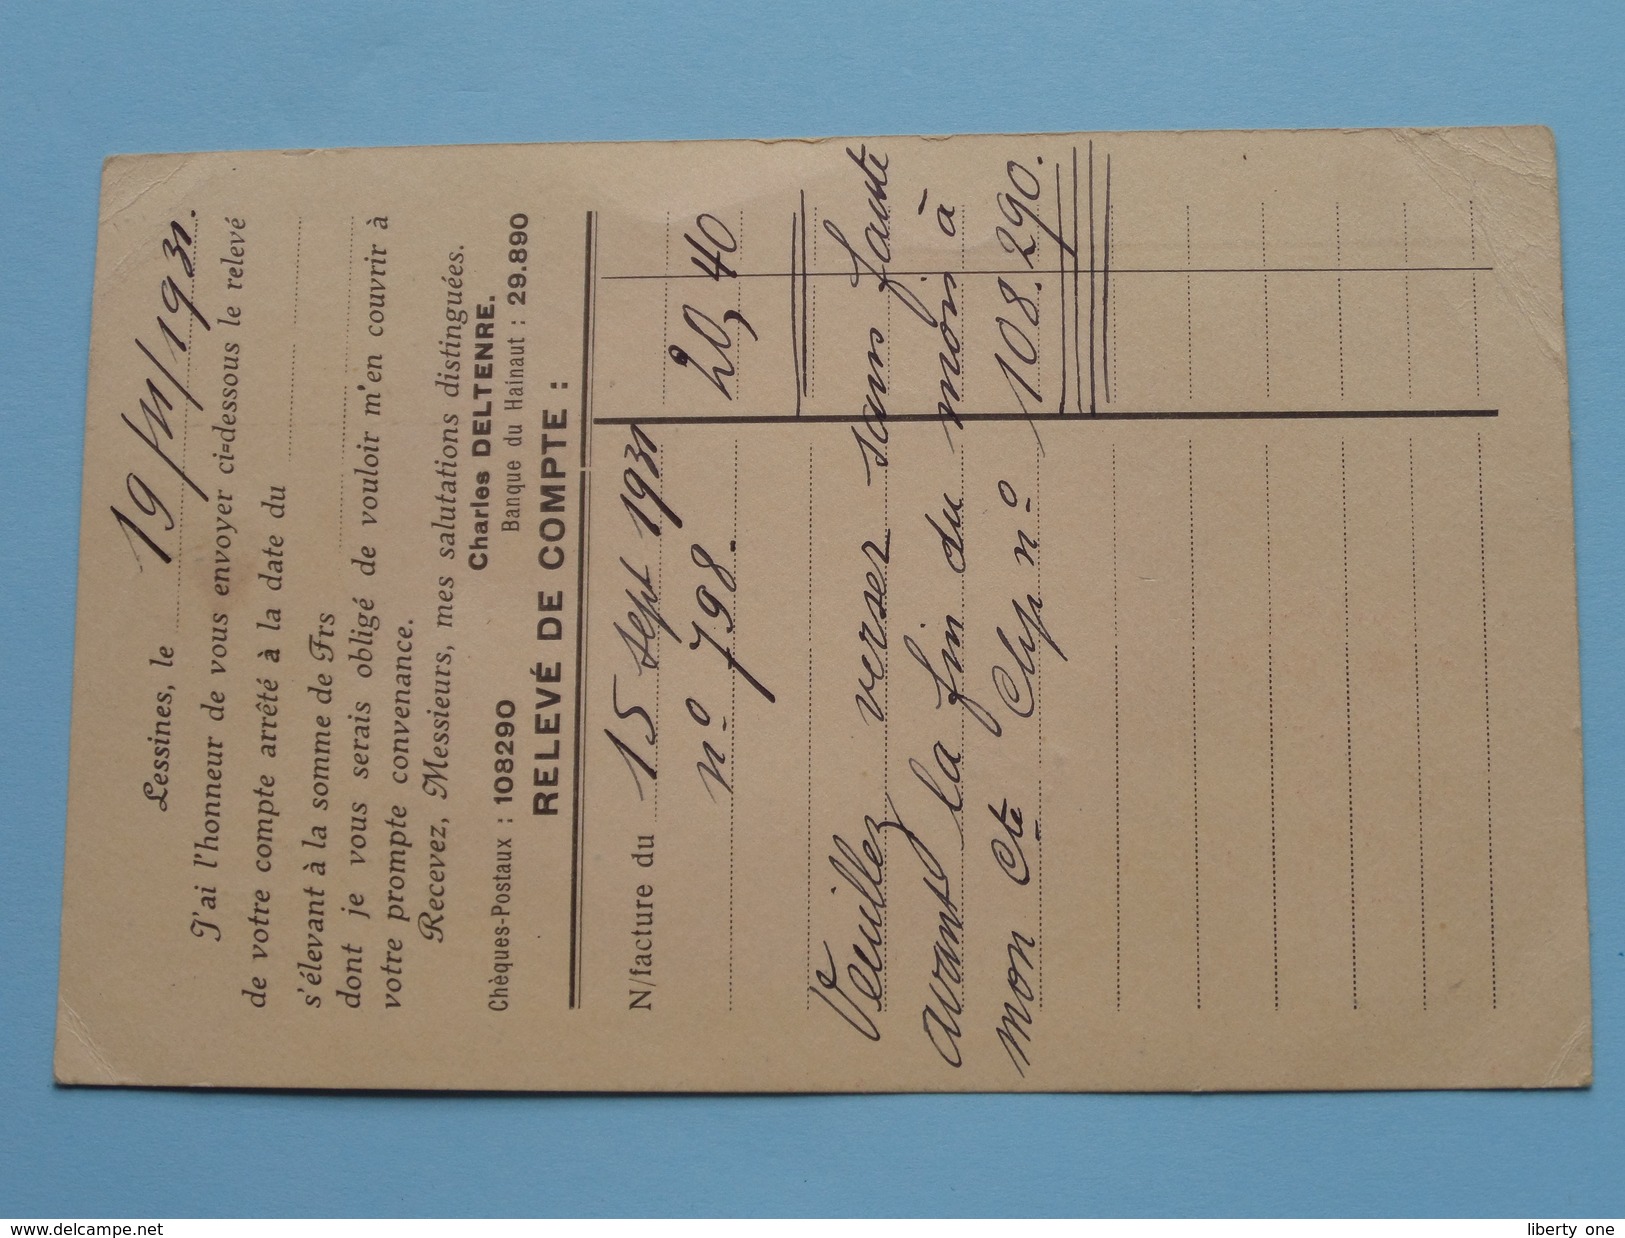 Lessines, le 19/ /1931.
J'ai l'honneur de vous envoyer ci-dessous le relevé
de votre compte arrêté à la date du
s'élevant à la somme de Frs
dont je vous serais obligé de vouloir m'en couvrir à
votre prompte convenance.
Recevez, Messieurs, mes salutations distinguées.
Charles DELTENRE.
Chèques-Postaux : 108290 Banque du Hainaut : 29.890
RELEVÉ DE COMPTE :
N/facture du 15 sept 1931
n° 798. 20,40
Veuillez verser sans faute
avant la fin du mois à
mon Cte Chp n° 108.290.
www.delcampe.net
liberty one